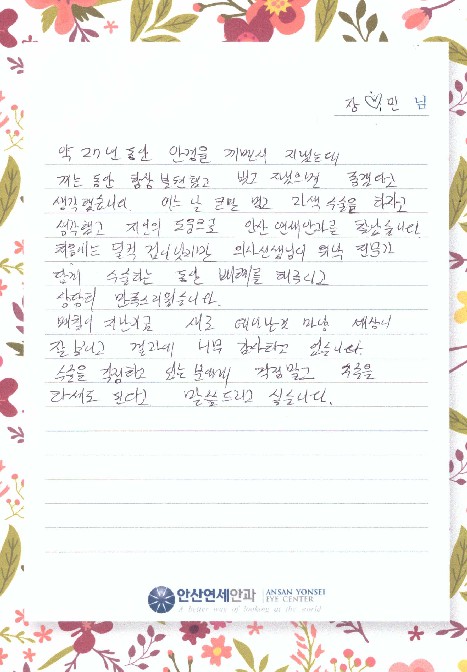 장♡민 님
약 20년 동안 안경을 끼면서 지냈는데
끼는 동안 항상 불편했고 벗고 지냈으면 좋겠다고
생각했습니다. 어느 날 큰맘 먹고 라섹수술을 하자고
생각했고 지인의 도움으로 안산연세안과를 찾았습니다.
처음에는 덜컥 겁이났지만 의사선생님이 워낙
수술하는 동안 배려를 해주시고
상당히 만족스러웠습니다.
며칠이 지난지금 새로 태어난것 마냥 세상이
잘 보이고 결과에 너무 감사하고 있습니다.
수술을 걱정하고 있는 분에게 걱정말고 수술을
하셔도 된다고 말씀드리고 싶습니다.
안산연세안과 ANSAN YONSEI
EYE CENTER
A better way of looking at the world